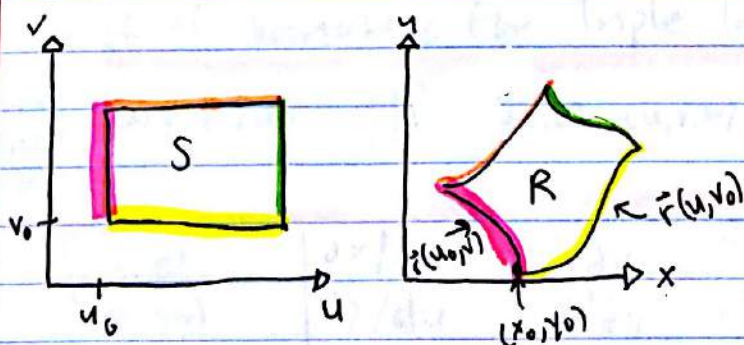 v
S
v₀
u₀
u
y
R
r⃗(u₀,v)
r⃗(u,v₀)
x
(x₀,y₀)